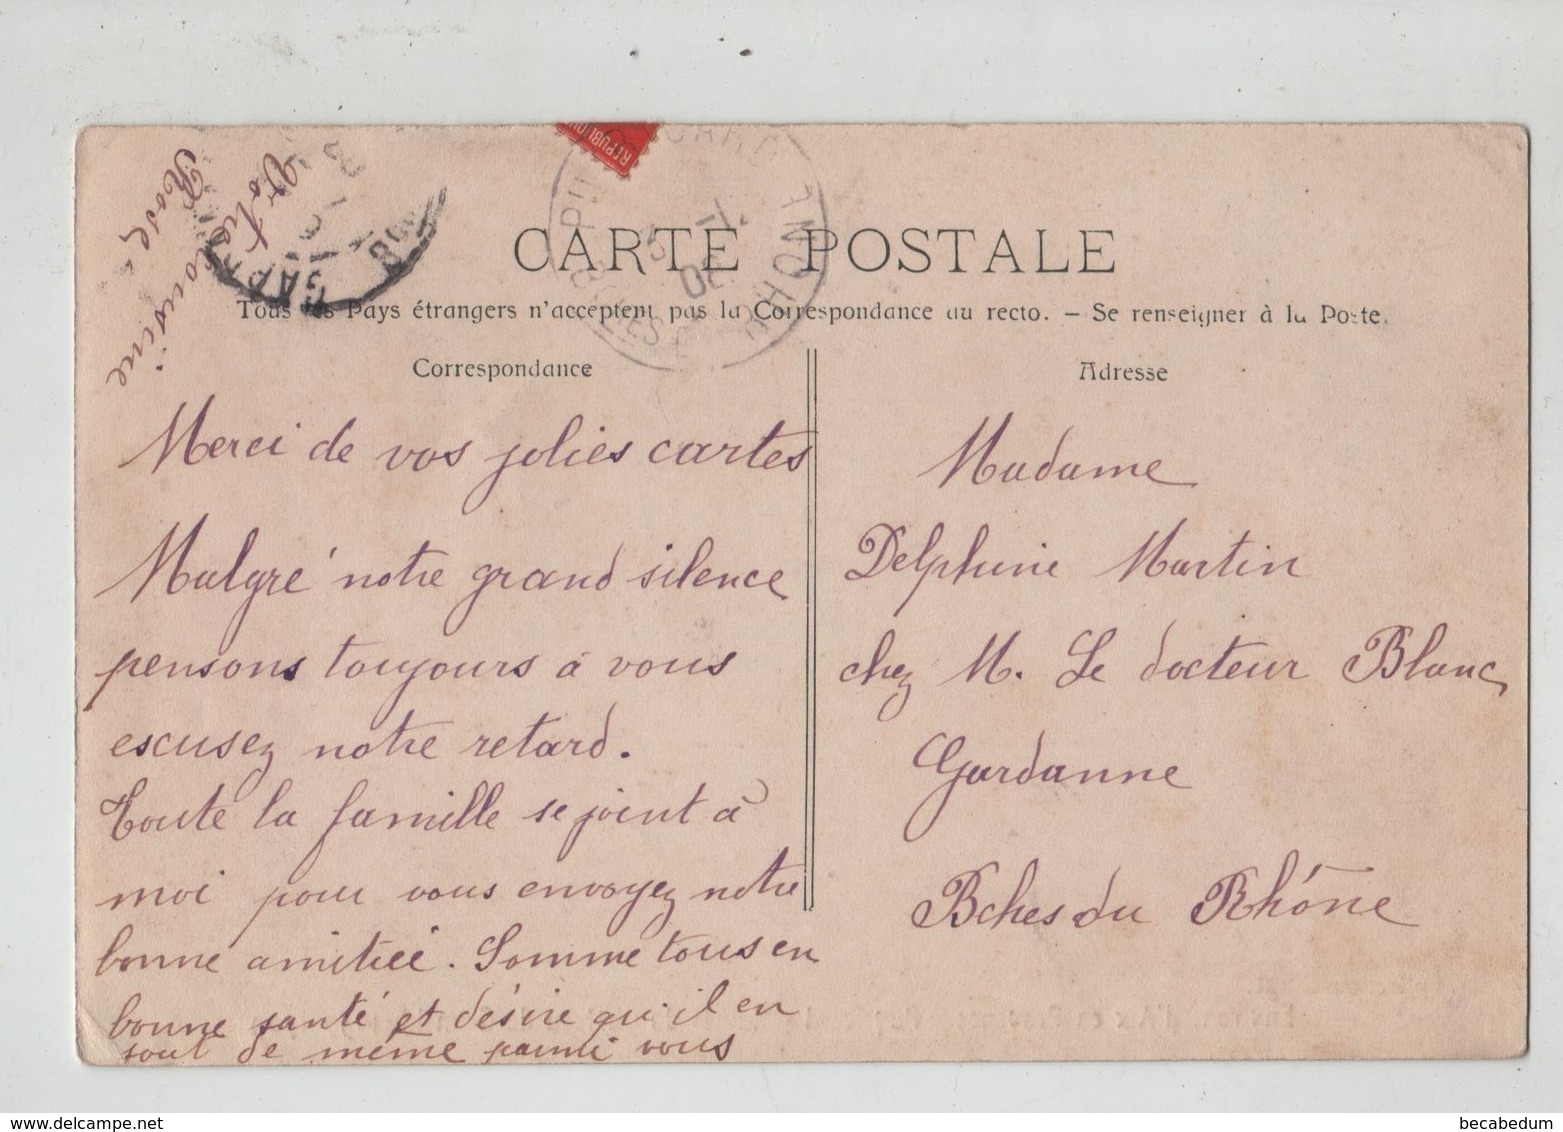 RÉPUBLIQU
CARTE POSTALE
Tous les Pays étrangers n'acceptent pas la Correspondance au recto. – Se renseigner à la Poste.
Correspondance
Merci de vos jolies cartes
Malgré notre grand silence
pensons toujours à vous
escusez notre retard.
Toute la famille se joint à
moi pour vous envoyez notre
bonne amitiée. Somme tous en
bonne santé et désire qu'il en
sout de même parmi vous
Votre cousine
Rose
Adresse
Madame
Delphine Martin
chez M. Le docteur Blanc
Gardanne
Bches du Rhône
becabedum